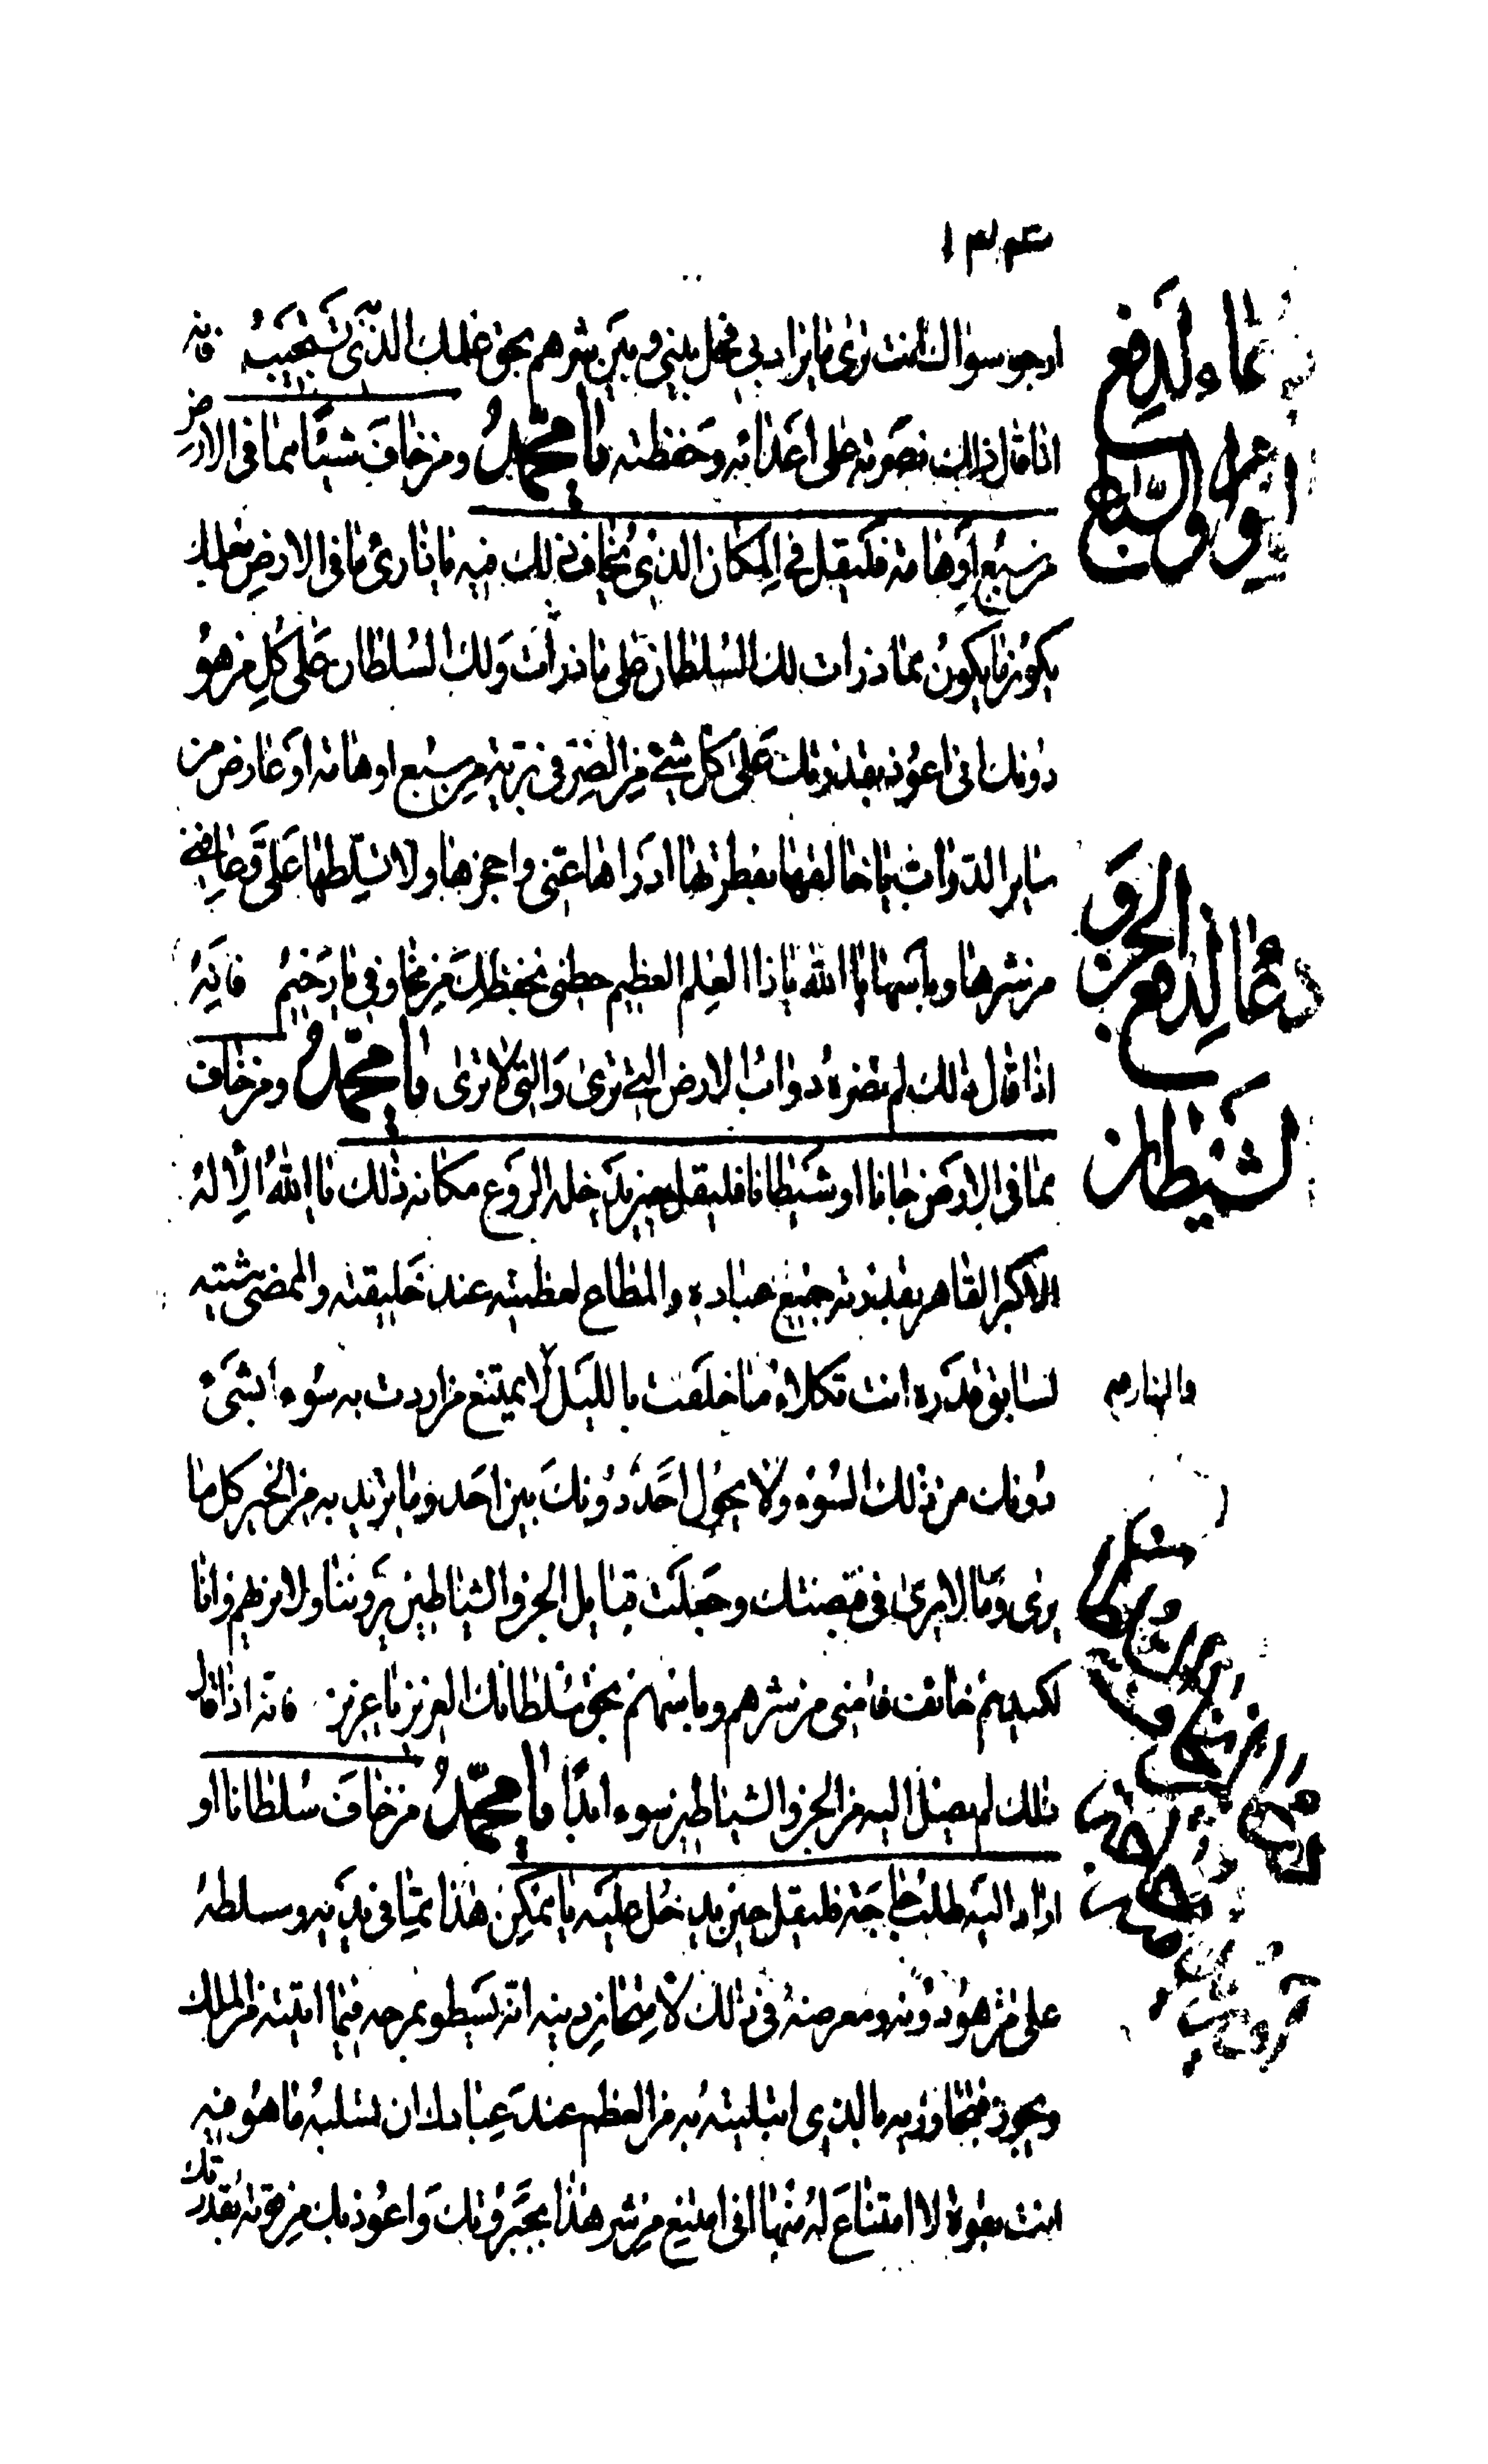 ١٣٤
ارجو سواك انت ترى ما يراد بي فحل بيني وبين شرهم بحق علمك الذي تستجيب فانه
اذا قال ذلك نصرته على اعدائه وحفظته يا محمد ومن خاف شيئا مما في الارض
من سبع او هامة فليقل في المكان الذي يخاف ذلك فيه يا ذارئ ما في الارض بعلمك
يكون ما يكون مما ذرات لك السلطان على ما ذرات ولك السلطان على كل من هو
دونك اني اعوذ بقدرتك على كل شيء من الضر في بدني من سبع او هامة او عارض من
ساير الدواب يا خالقها بفطرتها ادراها عني واحجزها ولا تسلطها علي وعافني
من شرها وباسها يا الله يا ذا العلم العظيم حطني بحفظك من مخاوفي يا رحيم فانه
اذا قال ذلك لم تضره دواب الارض التي ترى والتي لا ترى يا محمد ومن خاف
مما في الارض جانا او شيطانا فليقل حين يدخله الروع مكانه ذلك يا الله الاله
الاكبر القاهر بقدرته جميع عباده والمطاع لعظمته عند خليقته والممضي مشيته
لسابق قدره انت تكلاء ما خلقت بالليل لا يمتنع من اردت به سوء ابشيء
دونك من ذلك السوء ولا يحول احد دونك بين احد وما يريد به من الخير كل ما
يرى وما لا يرى في قبضتك وجعلت قبايل الجن والشياطين يروننا ولا نريهم وانا
لكيدهم خائف فامني من شرهم وباسهم بحق سلطانك العزيز يا عزيز فانه اذا قال
ذلك لم يصل اليه من الجن والشياطين سوء ابدا يا محمد من خاف سلطانا او
اراد اليه طلب حاجة فليقل حين يدخل عليه يا ممكن هذا مما في يديه ومسلطه
على من هو دونه ومعرضه في ذلك لامتحان دينه انه يسطو بمرحه فيما اتيته من الملك
ويجور فيتجاوز به بالذي ابتليته به من العظم عند عبادك ان تسلبه ما هو فيه
انت بقوة لا امتناع له منها اني امتنع من شر هذا بجبروتك واعوذ بك من قوته بقدرتك
دعاء لدفع
الهوام والسباع
دعا لدفع الجن و
الشيطان
والنهار صح